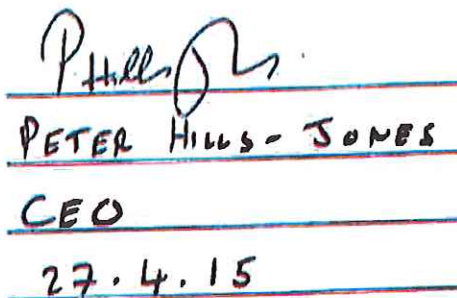 P Hills J
PETER HILLS-JONES
CEO
27.4.15